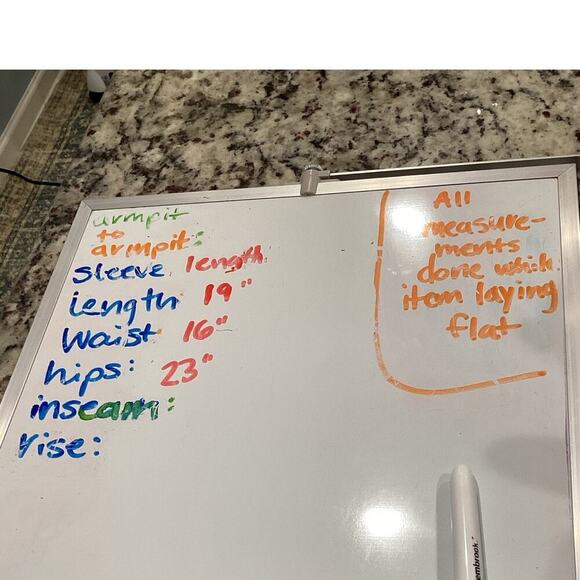 armpit
to
armpit:
sleeve length
length 19"
Waist 16"
hips: 23"
inseam:
rise:
All
measure-
ments
done which
item laying
flat